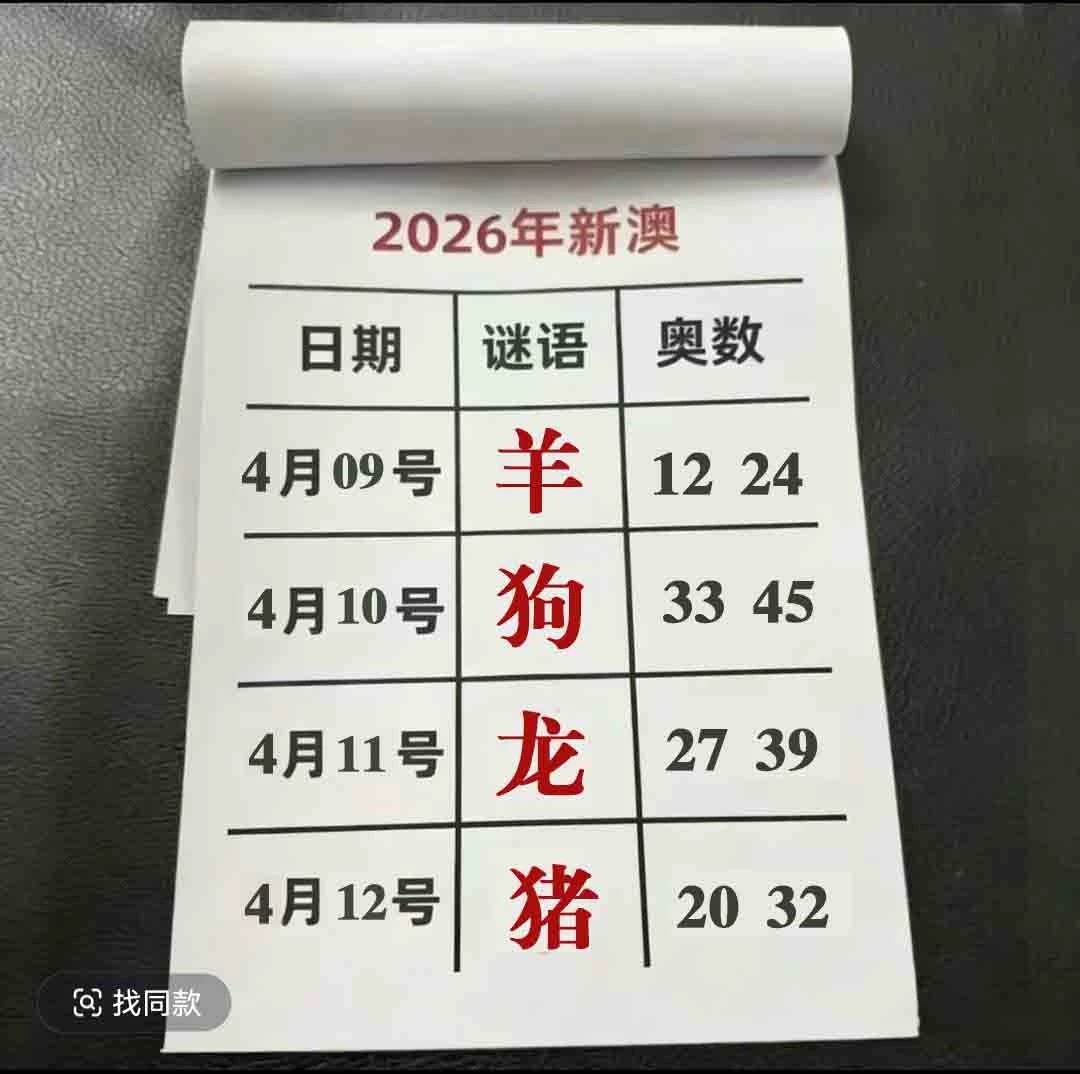 2026年新澳
日期 谜语 奥数
4月09号 羊 12 24
4月10号 狗 33 45
4月11号 龙 27 39
4月12号 猪 20 32
找同款